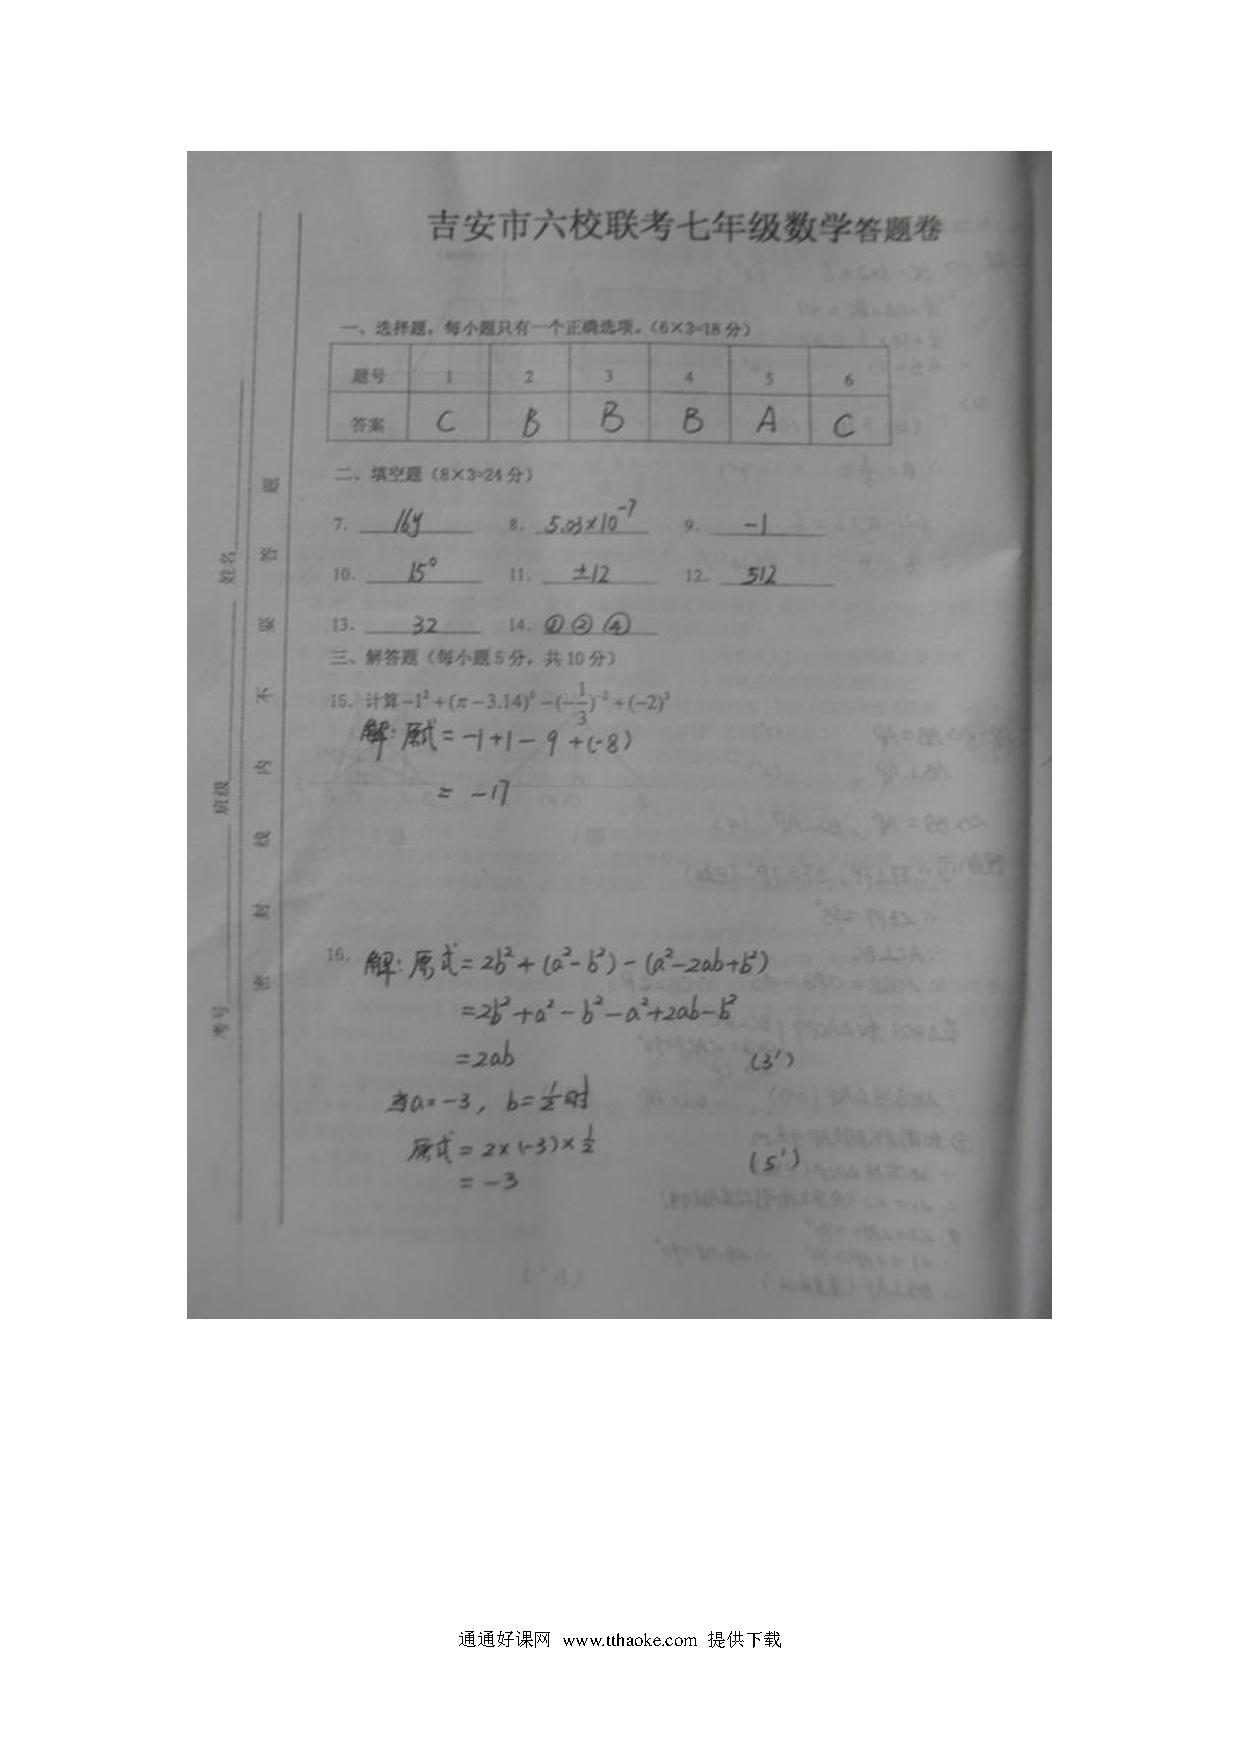 吉安市六校联考七年级数学答题卷
一、选择题，每小题只有一个正确选项。(6×3=18分)
题号 1 2 3 4 5 6
答案 C B B B A C
二、填空题（8×3=24分）
7. 16y 8. 5.03×10⁻⁷ 9. -1
10. 15° 11. ±12 12. 512
13. 32 14. ①②④
三、解答题（每小题5分，共10分）
15. 计算-1²+(π-3.14)⁰-(-1/3)⁻²+(-2)³
解：原式=-1+1-9+(-8)
= -17
16. 解：原式=2b²+(a²-b²)-(a²-2ab+b²)
=2b²+a²-b²-a²+2ab-b²
=2ab (3')
当a=-3，b=1/2时
原式=2×(-3)×1/2
(5')
=-3
考号 班级 姓名
密 封 线 内 不 要 答 题
通通好课网 www.tthaoke.com 提供下载